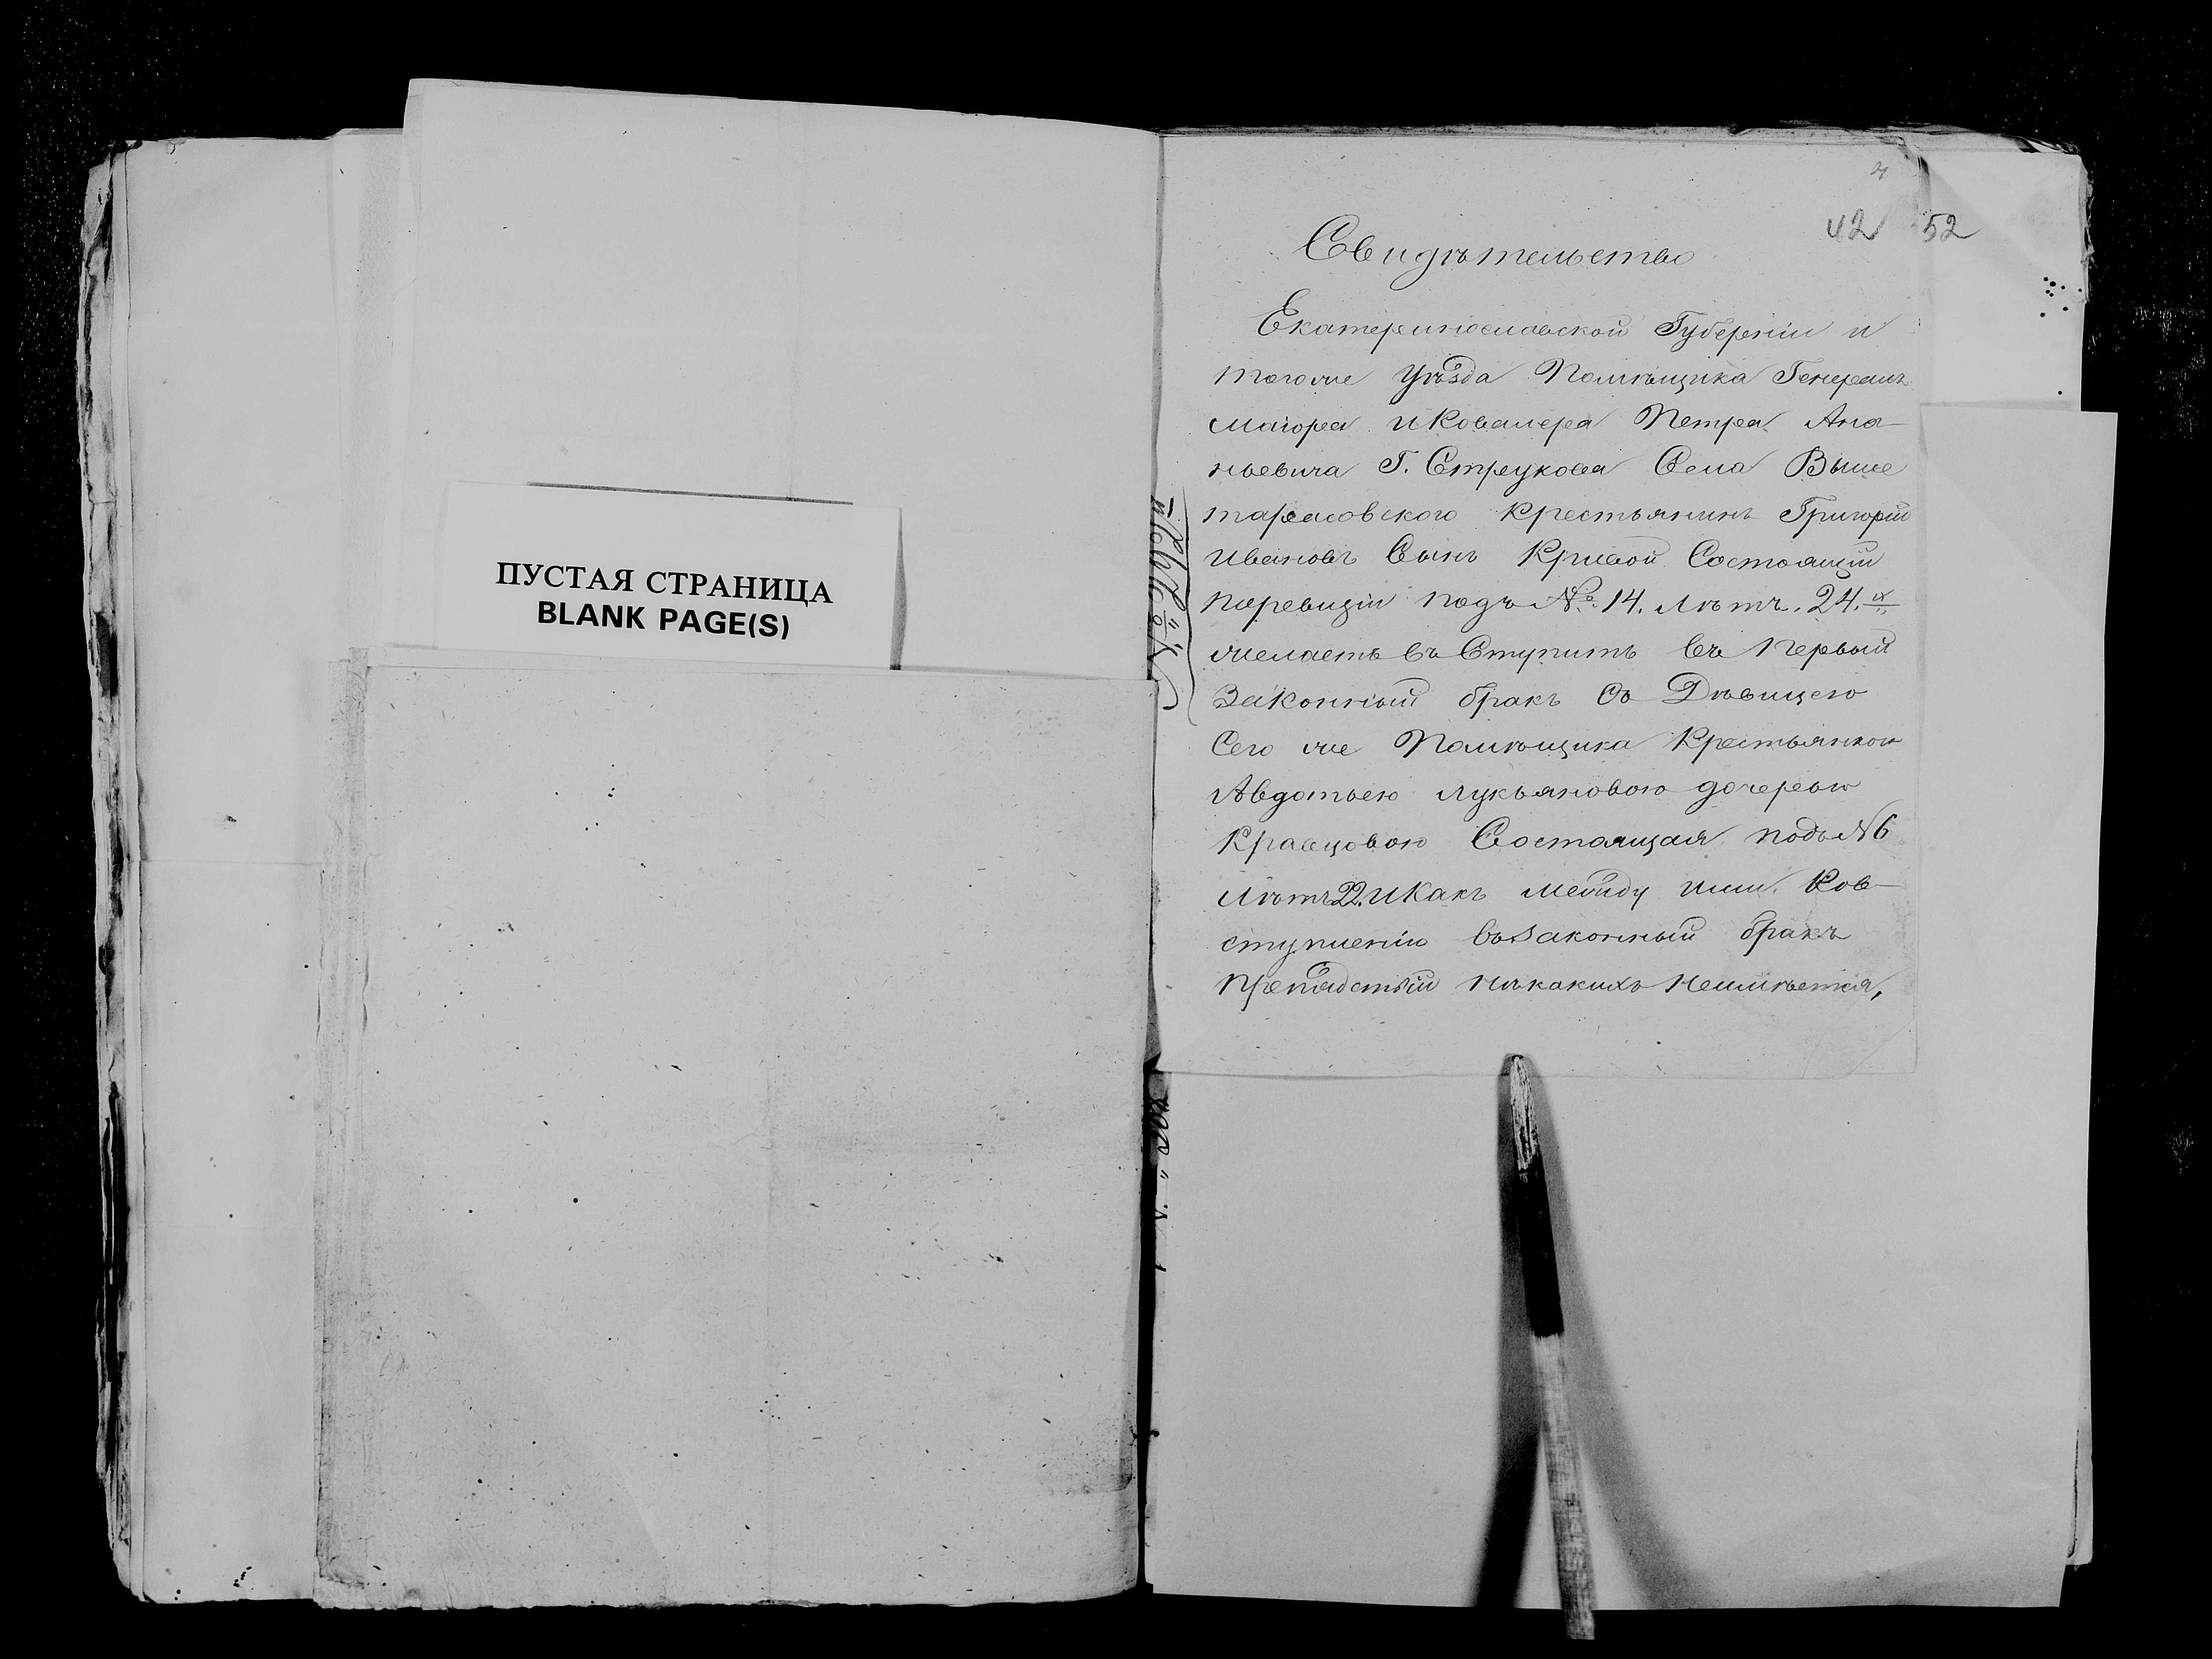 ПУСТАЯ СТРАНИЦА
BLANK PAGE(S)
42 52
Свидѣтельство
Екатеринославской Губерніи и
тогоже Уѣзда Помѣщика Генералъ
маіора иКовалера Петра Ана-
ньевича Г. Струкова Села Выше
тарасовского Крестьянинъ Григорій
Ивановъ Сынъ Кривой Состоящій
Поревизіи подъ №. 14. Лѣтъ. 24.
желаетъ въ Ступить въ Первый
Законный бракъ Съ Дѣвицею
Сего же Помѣщика Крестьянкою
Авдотьею Лукьяновою дочерью
Кравцовою Состоящая подъ №6
Лѣтъ 22. иКакъ между ими Ков-
ступленію въЗаконный бракъ
Препядствій Нѣкакихъ Неимѣется,